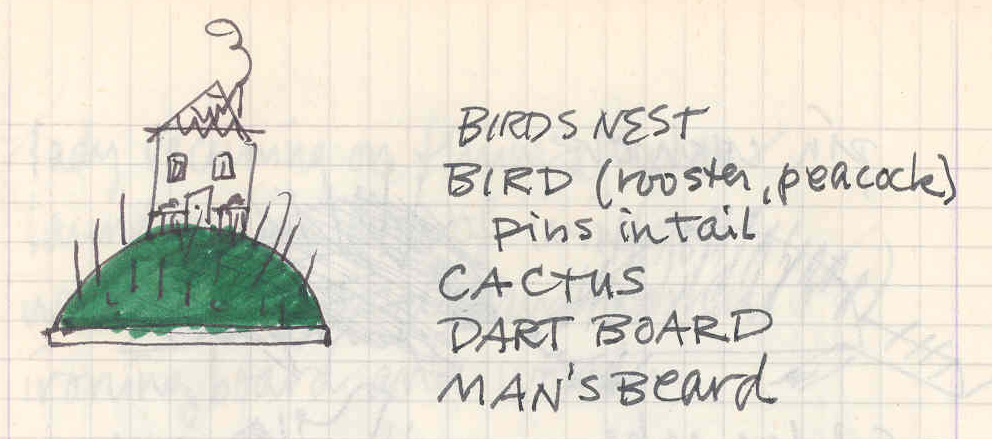 BIRDS NEST
BIRD (rooster, peacock)
pins in tail
CACTUS
DART BOARD
MAN'S Beard